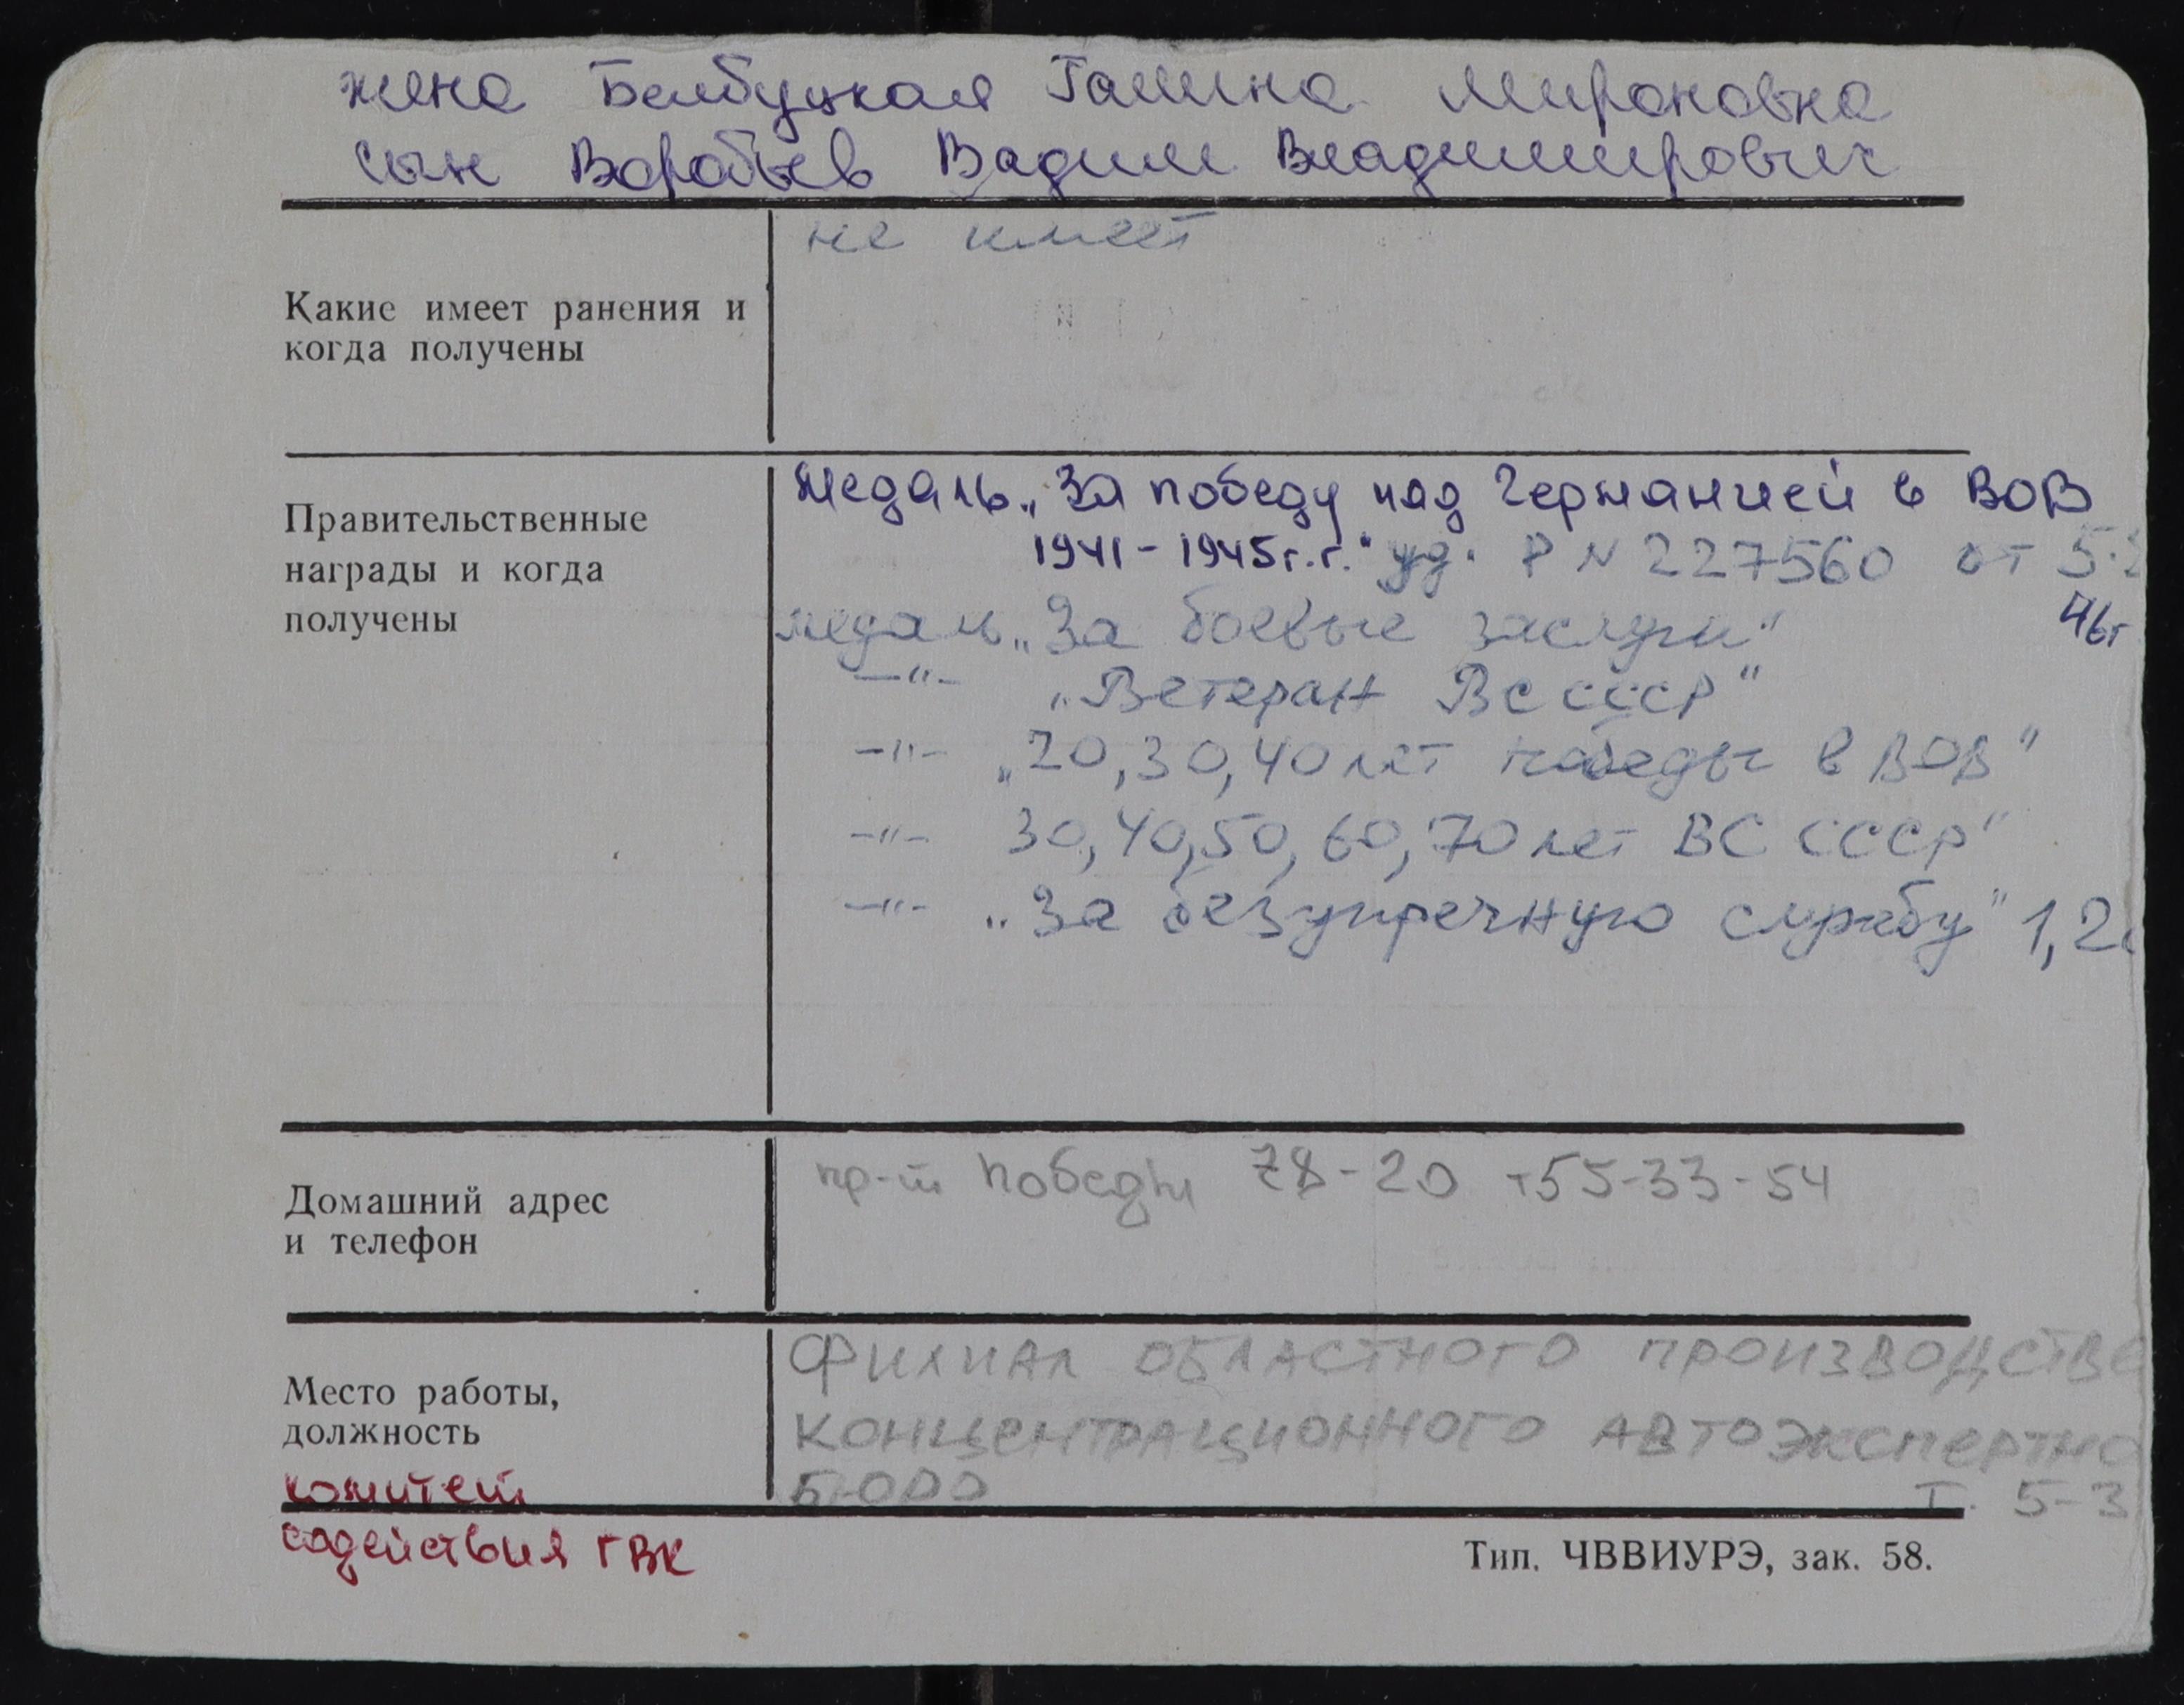 жена Белбуцкая Галина Мироновна
сын Воробьев Вадим Владимирович
не имеет
Какие имеет ранения и
когда получены
Правительственные
награды и когда
получены
медаль „За победу над Германией в ВОВ
1941-1945г.г." уд. Р N 227560 от 5.
46г
медаль „За боевые заслуги"
-"- „Ветеран ВС СССР"
-"- „20,30,40 лет победы в ВОВ"
-"- 30,40,50,60,70 лет ВС СССР"
-"- „За безупречную службу" 1,2
Домашний адрес
и телефон
пр-т Победы 78-20 т55-33-54
Место работы,
должность
ФИЛИАЛ ОБЛАСТНОГО ПРОИЗВОДСТВЕ
КОНЦЕНТРАЦИОННОГО АВТОЭКСПЕРТНО
БЮРО Т. 5-3
комитет
содействия ГВК
Тип. ЧВВИУРЭ, зак. 58.